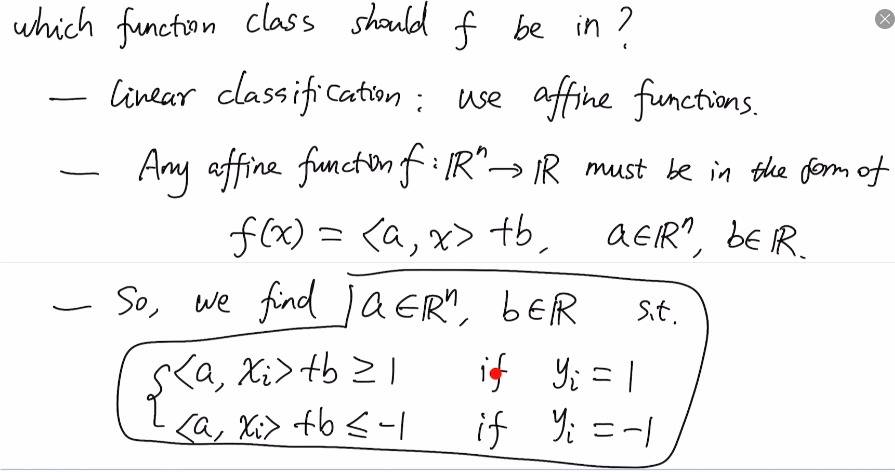 which function class should f be in?
— linear classification: use affine functions.
— Any affine function f: ℝⁿ → ℝ must be in the form of
f(x) = <a, x> + b, a∈ℝⁿ, b∈ℝ.
— So, we find a∈ℝⁿ, b∈ℝ s.t.
{ <a, xᵢ> + b ≥ 1 if yᵢ = 1
<a, xᵢ> + b ≤ -1 if yᵢ = -1